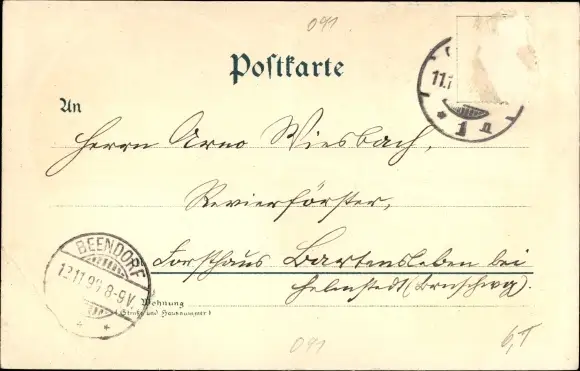 041
Postkarte
11.
1 n
An
Herrn Arno Wiesbach,
Revierförster,
Forsthaus Bartensleben bei
Helmstedt (Brnschwg).
BEENDORF
8-9V.
Wohnung
(Straße und Hausnummer)
041